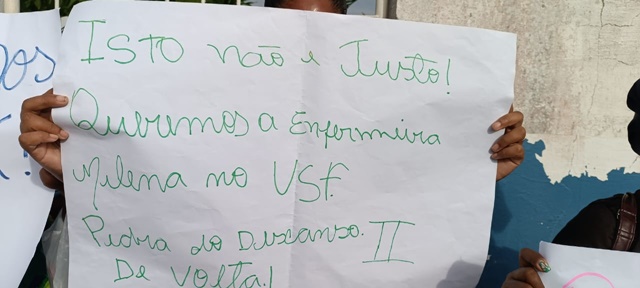 ISTO não é Justo!
Queremos a Enfermeira
Milena no USF.
Pedra do Descanso. II
De Volta!